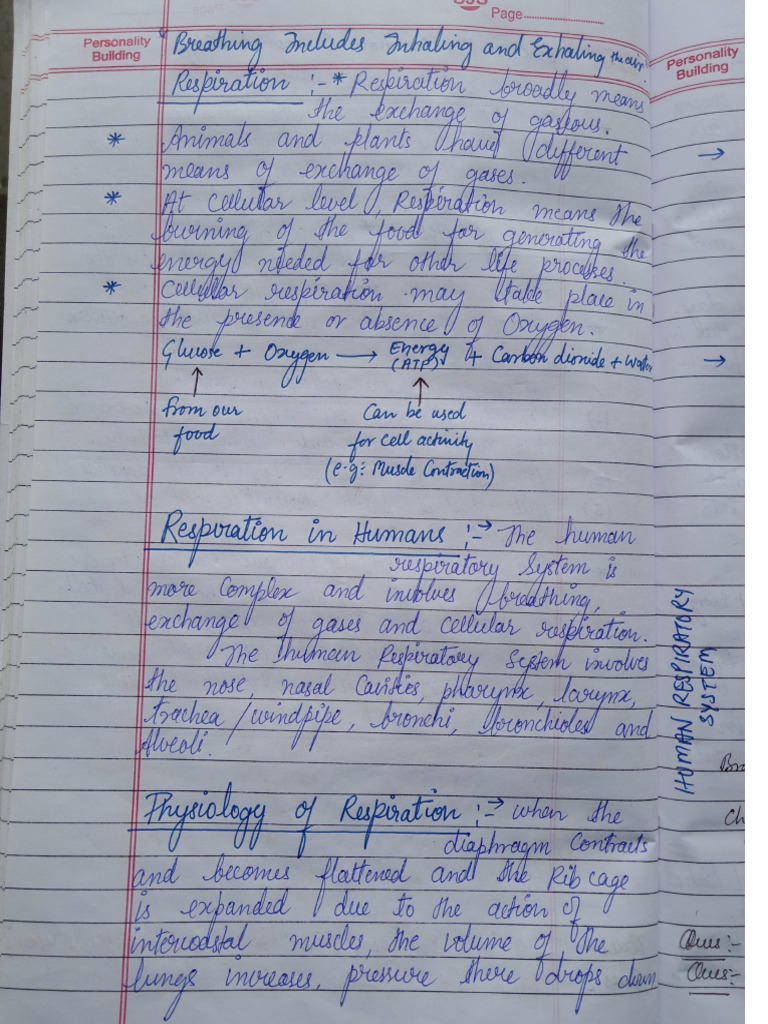 Page
Personality Building
Breathing Includes Inhaling and Exhaling the air.
Personality Building
Respiration :- * Respiration broadly means
the exchange of gaseous.
* Animals and plants have different
means of exchange of gases.
* At cellular level, Respiration means the
burning of the food for generating the
energy needed for other life processes.
* Cellular respiration may take place in
the presence or absence of Oxygen.
Glucose + Oxygen → Energy (ATP) + Carbon dioxide + Water
↑ ↑
From our food
Can be used
for cell activity
(e.g: Muscle Contraction)
Respiration in Humans :-> The human
respiratory System is
more complex and involves breathing,
exchange of gases and cellular respiration.
The human Respiratory System involves
the nose, nasal Cavities, pharynx, larynx,
trachea/windpipe, bronchi, bronchioles and
Alveoli.
Physiology of Respiration :-> when the
diaphragm Contracts
and becomes flattened and the Rib cage
is expanded due to the action of
intercoastal muscles, the volume of the
lungs increases, pressure there drops down
HUMAN RESPIRATORY
SYSTEM
Ques:-
Ques:-